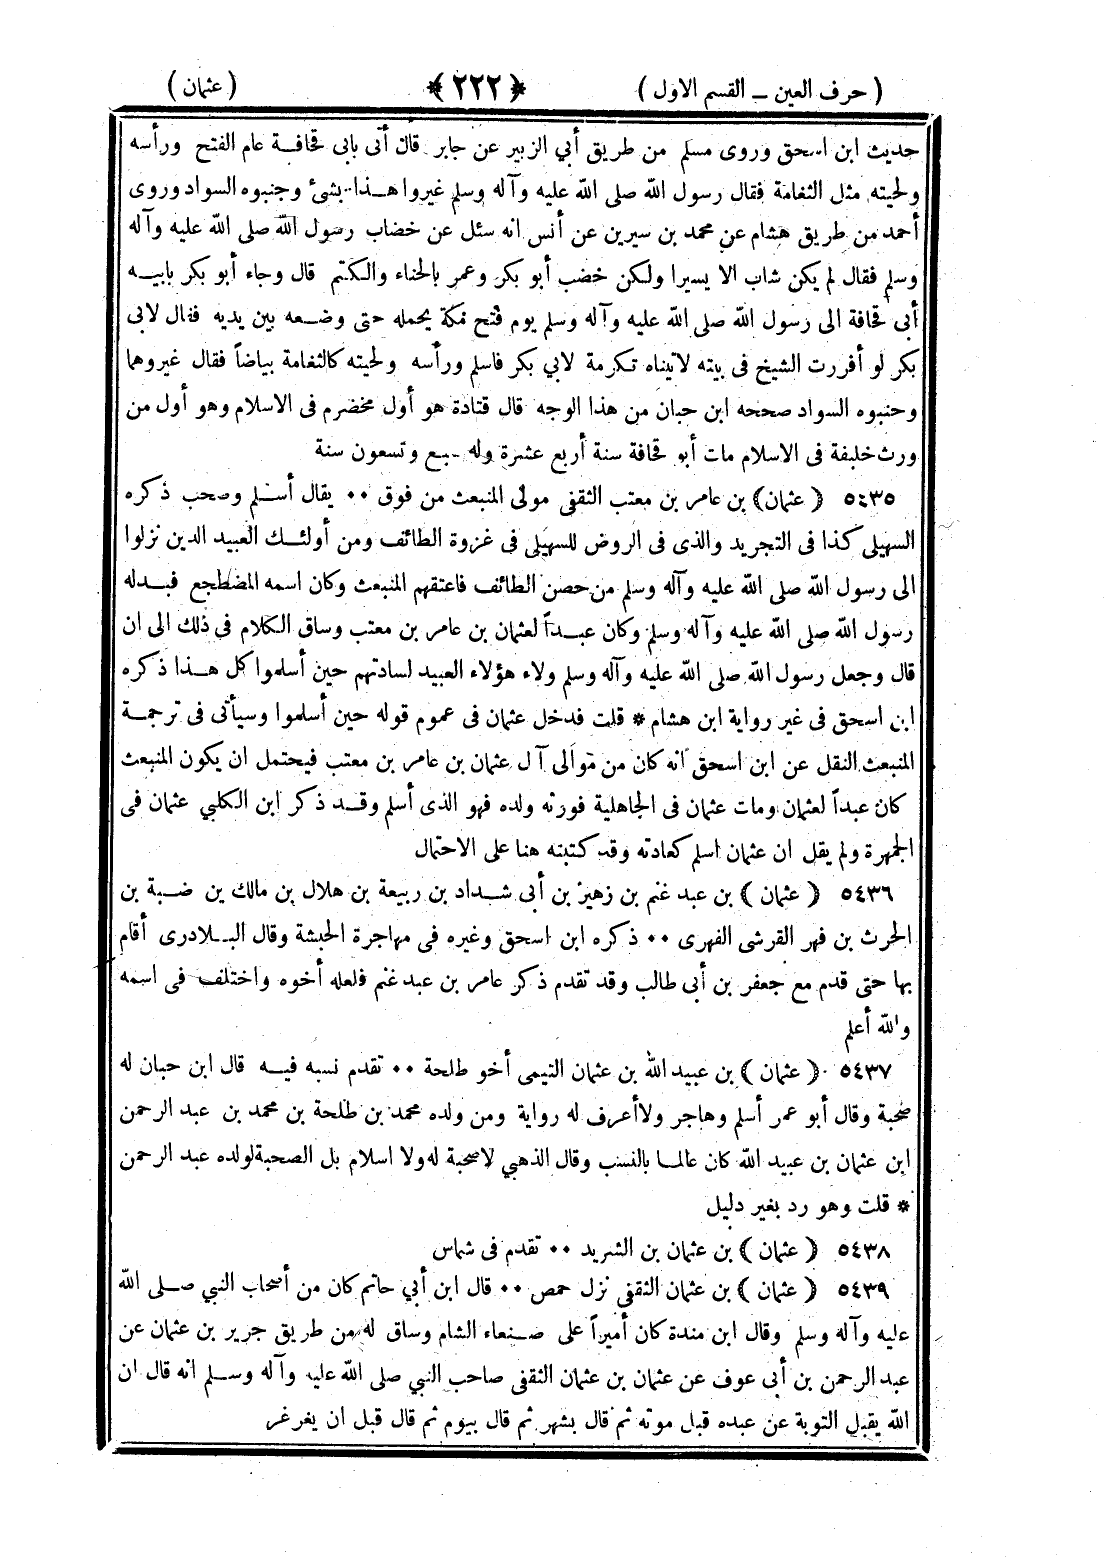 ( حرف العين ــ القسم الاول ) ﴿ ٢٢٢ ﴾ ( عثمان )
حديث ابن اسحق وروى مسلم من طريق أبي الزبير عن جابر قال أتى بابى قحافة عام الفتح ورأسه
ولحيته مثل الثغامة فقال رسول الله صلى الله عليه وآله وسلم غيروا هذا بشئ وجنبوه السواد وروى
أحمد من طريق هشام عن محمد بن سيرين عن أنس انه سئل عن خضاب رسول الله صلى الله عليه وآله
وسلم فقال لم يكن شاب الا يسيرا ولكن خضب أبو بكر وعمر بالحناء والكتم قال وجاء أبو بكر بابيه
أبى قحافة الى رسول الله صلى الله عليه وآله وسلم يوم فتح مكة يحمله حتى وضعه بين يديه فقال لابى
بكر لو أقررت الشيخ فى بيته لاتيناه تكرمة لابي بكر فاسلم ورأسه ولحيته كالثغامة بياضاً فقال غيروهما
وجنبوه السواد صححه ابن حبان من هذا الوجه قال قتادة هو أول مخضرم فى الاسلام وهو أول من
ورث خليفة فى الاسلام مات أبو قحافة سنة أربع عشرة وله سبع وتسعون سنة
٥٤٣٥ ﴿ عثمان ﴾ بن عامر بن معتب الثقفى مولى المنبعث من فوق ٠٠ يقال أسلم وصحب ذكره
السهيلى كذا فى التجريد والذى فى الروض للسهيلى فى غزوة الطائف ومن أولئك العبيد الدين نزلوا
الى رسول الله صلى الله عليه وآله وسلم من حصن الطائف فاعتقهم المنبعث وكان اسمه المضطجع فبدله
رسول الله صلى الله عليه وآله وسلم وكان عبداً لعثمان بن عامر بن معتب وساق الكلام فى ذلك الى ان
قال وجعل رسول الله صلى الله عليه وآله وسلم ولاء هؤلاء العبيد لسادتهم حين أسلموا كل هذا ذكره
ابن اسحق فى غير رواية ابن هشام * قلت فدخل عثمان فى عموم قوله حين أسلموا وسيأتى فى ترجمة
المنبعث النقل عن ابن اسحق أنه كان من موالى آل عثمان بن عامر بن معتب فيحتمل ان يكون المنبعث
كان عبداً لعثمان ومات عثمان فى الجاهلية فورثه ولده فهو الذى أسلم وقد ذكر ابن الكلبي عثمان فى
الجمهرة ولم يقل ان عثمان اسلم كعادته وقد كتبته هنا على الاحتمال
٥٤٣٦ ﴿ عثمان ﴾ بن عبد غنم بن زهير بن أبى شداد بن ربيعة بن هلال بن مالك بن ضبة بن
الحرث بن فهر القرشى الفهرى ٠٠ ذكره ابن اسحق وغيره فى مهاجرة الحبشة وقال البلادرى أقام
بها حتى قدم مع جعفر بن أبى طالب وقد تقدم ذكر عامر بن عبد غنم فلعله أخوه واختلف فى اسمه
والله أعلم
٥٤٣٧ ﴿ عثمان ﴾ بن عبيد الله بن عثمان التيمى أخو طلحة ٠٠ تقدم نسبه فيه قال ابن حبان له
صحبة وقال أبو عمر أسلم وهاجر ولا أعرف له رواية ومن ولده محمد بن طلحة بن محمد بن عبد الرحمن
ابن عثمان بن عبيد الله كان عالما بالنسب وقال الذهبي لا صحبة له ولا اسلام بل الصحبة لولده عبد الرحمن
* قلت وهو رد بغير دليل
٥٤٣٨ ﴿ عثمان ﴾ بن عثمان بن الشريد ٠٠ تقدم فى شماس
٥٤٣٩ ﴿ عثمان ﴾ بن عثمان الثقفى نزل حمص ٠٠ قال ابن أبي حاتم كان من أصحاب النبي صلى الله
عليه وآله وسلم وقال ابن مندة كان أميراً على صنعاء الشام وساق له من طريق جرير بن عثمان عن
عبد الرحمن بن أبى عوف عن عثمان بن عثمان الثقفى صاحب النبي صلى الله عليه وآله وسلم انه قال ان
الله يقبل التوبة عن عبده قبل موته ثم قال بشهر ثم قال بيوم ثم قال قبل ان يغرغر